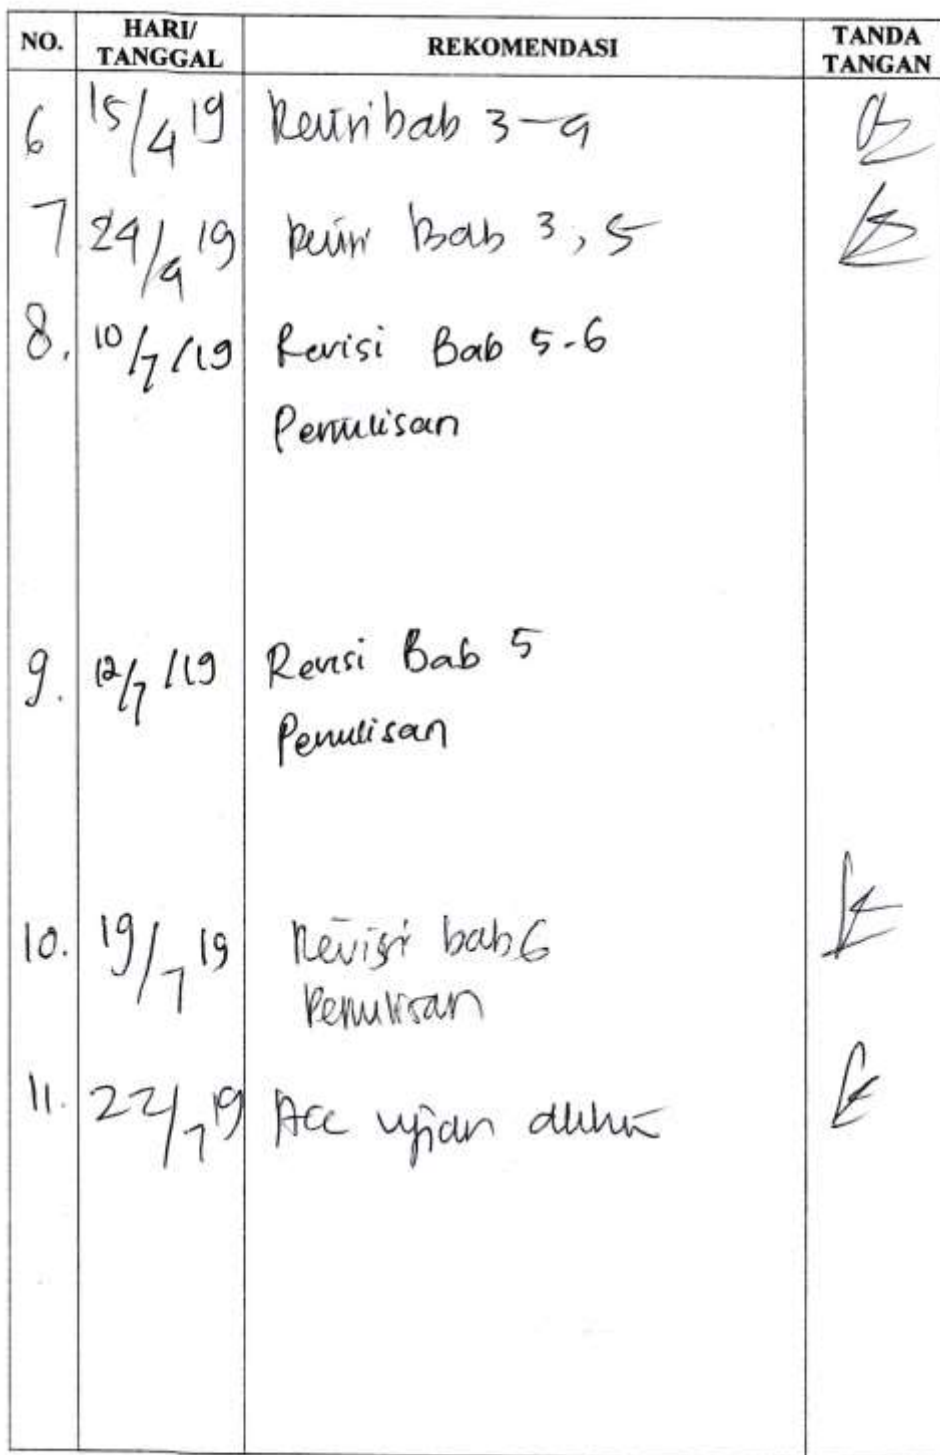 NO. HARI/ TANGGAL REKOMENDASI TANDA TANGAN
6 15/4 19 Revisi bab 3-4
7 24/4 19 Revisi Bab 3, 5
8. 10/7/19 Revisi Bab 5-6
Penulisan
9. 12/7/19 Revisi Bab 5
Penulisan
10. 19/7 19 Revisi bab 6
Penulisan
11. 22/7 19 Acc ujian akhir